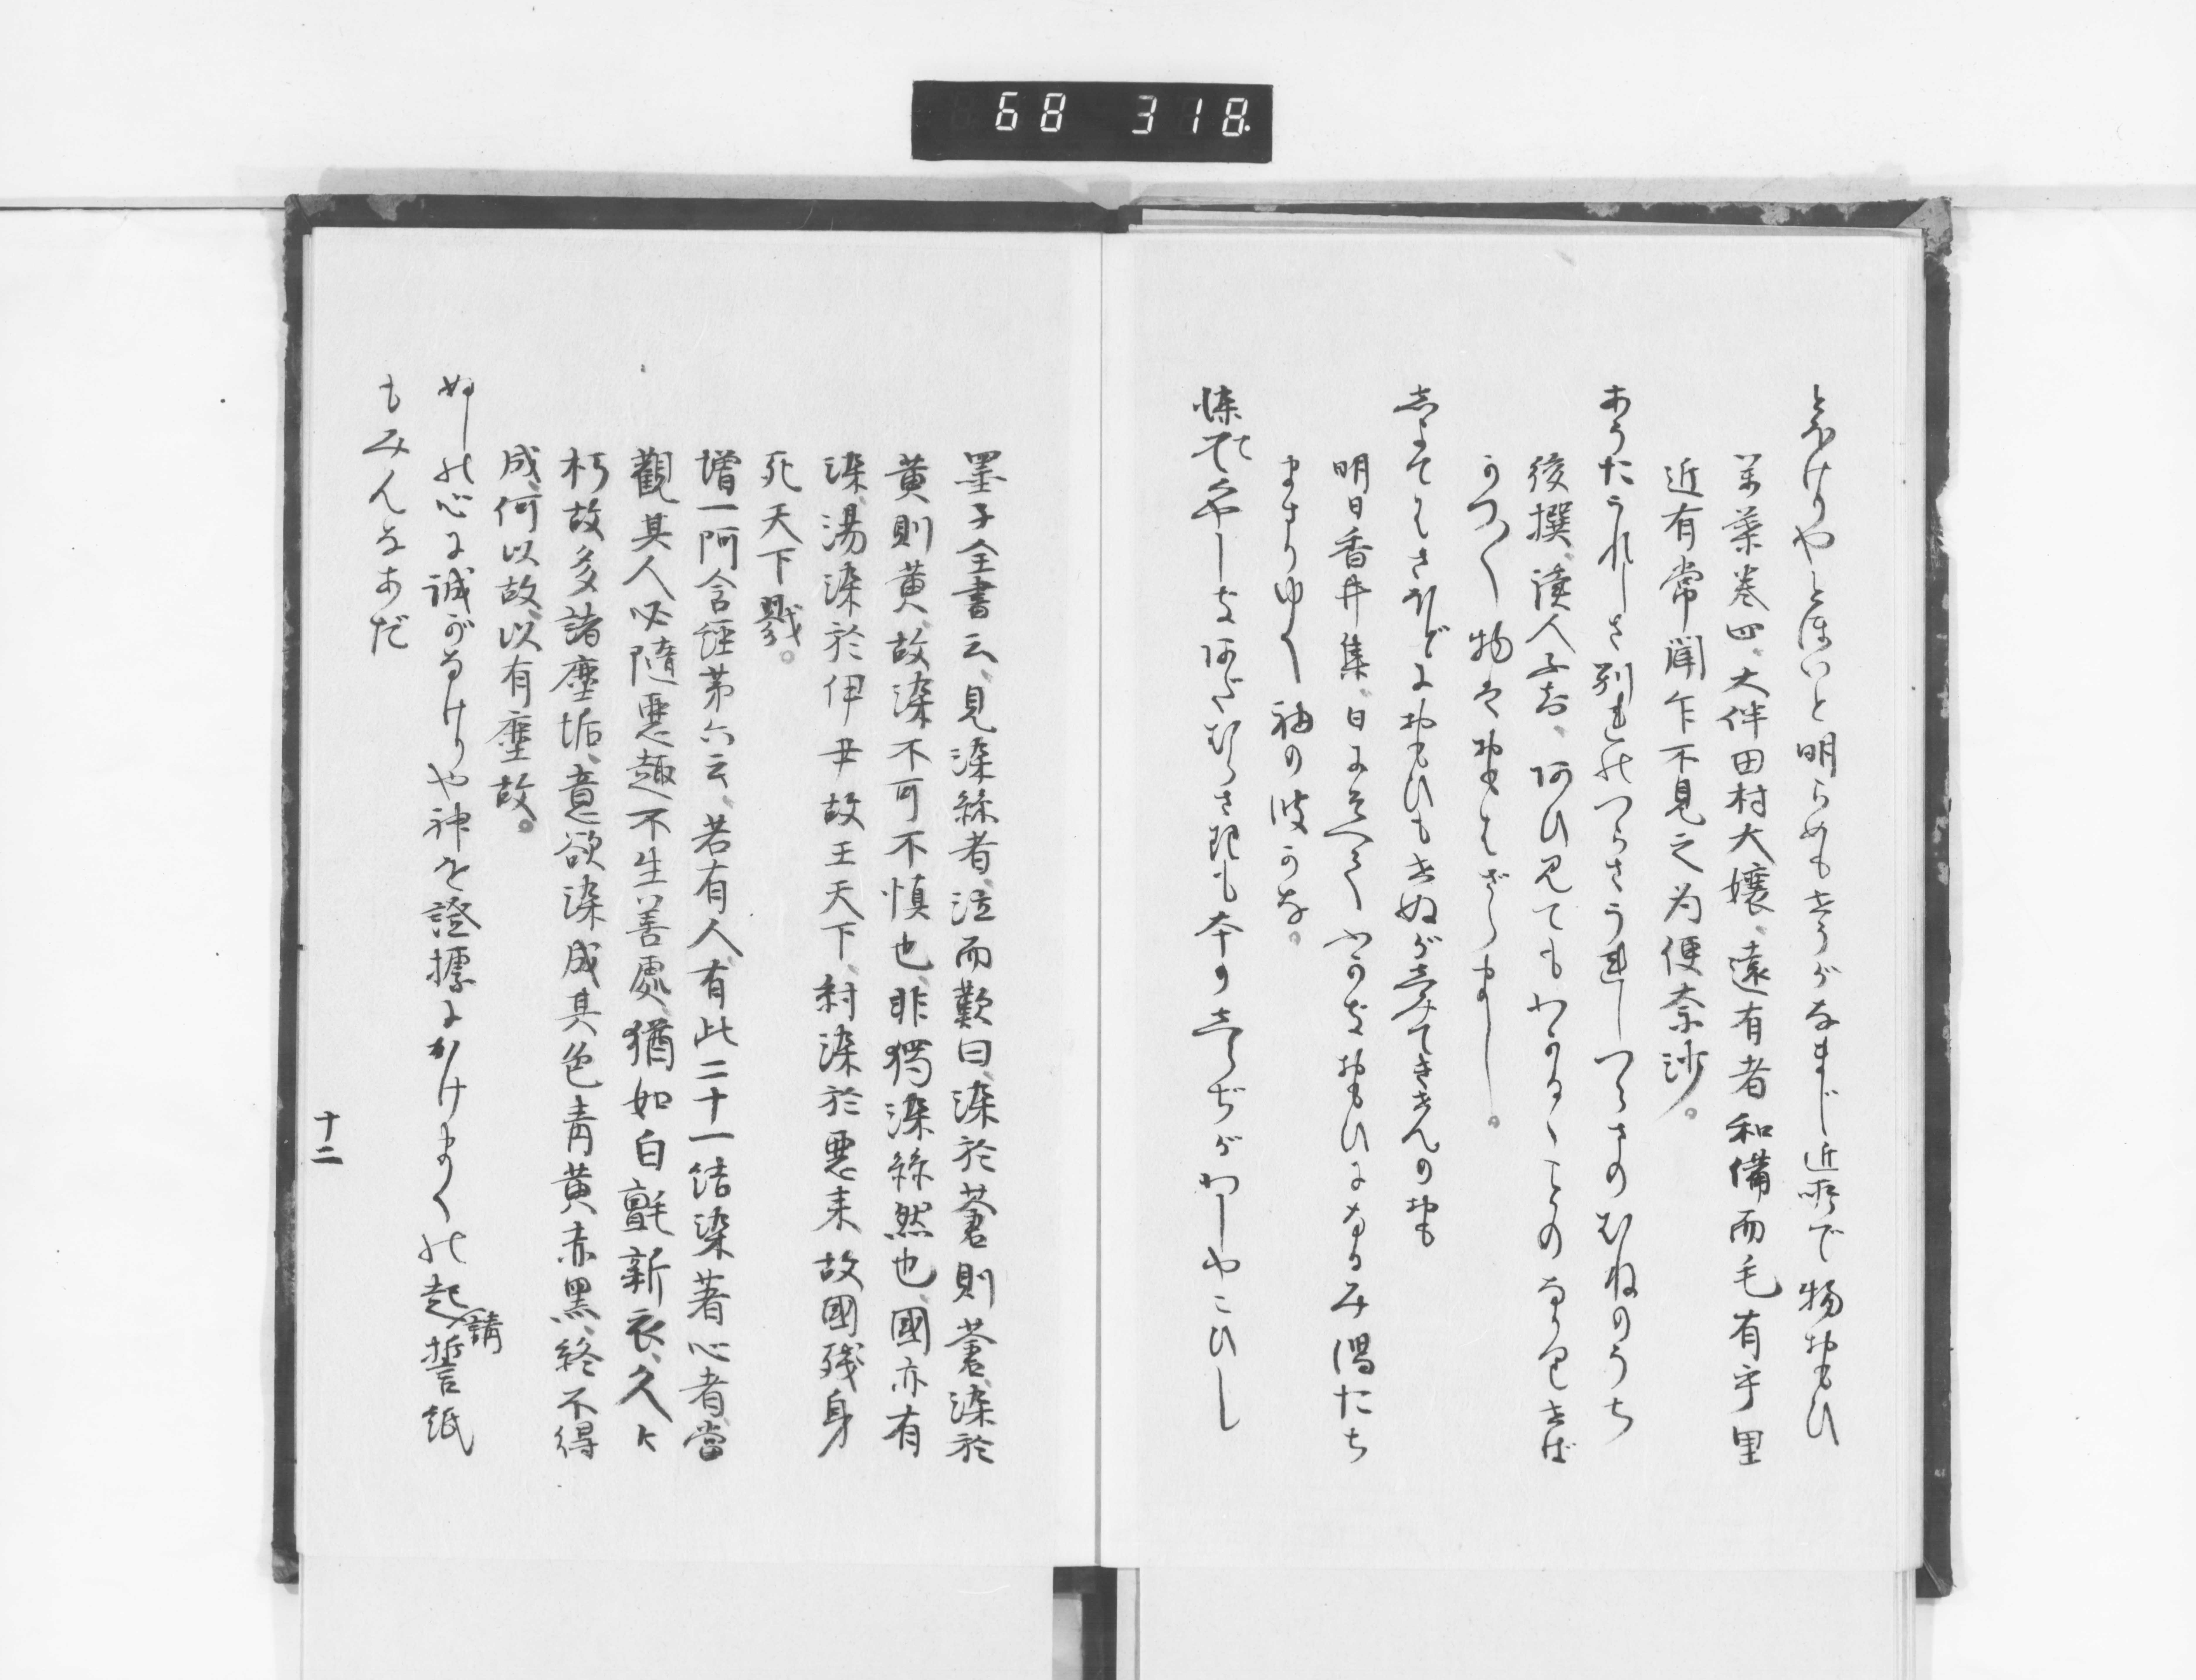 68 318.
とほけりやとほいと明らめもせうがなまじ近所で物おもひ
万葉巻四、大伴田村大嬢、遠有者和備而毛有乎里
近有常聞乍不見之为便奈沙。
あうたうれしさ別れのつらさうれしつらさのむねのうち
後撰、讀人不知、阿ひ見てもわかるゝことのなかりせば
かつ〱物はおもはざらまし。
志よてはさほどにおもひもせぬが
明日香井集、日にそへてふかきおもひになるみ潟たち
まさりゆく袖の波かな。
墨子全書云、見染絲者、泣而歎曰、染於蒼則蒼、染於
黄則黄、故染不可不慎也、非獨染絲然也、國亦有
染、湯染於伊尹故王天下、紂染於惡来故國殘身
死天下戮。
增一阿含經第六云、若有人、有此二十一結染著心者、當
觀其人必隨惡趣不生善處、猶如白㲲新衣、久久
朽故多諸塵垢、意欲染成其色青黄赤黒、終不得
成、何以故、以有塵故。
ぬしの心に誠がなけりや神を證據にかけまくの起請誓紙
もみんなあだ
十二